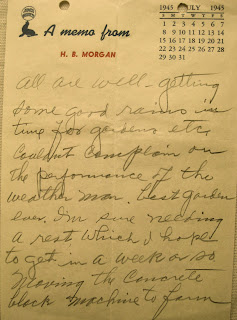 A memo from
H. B. MORGAN
1945 JULY 1945
S M T W T F S
1 2 3 4 5 6 7
8 9 10 11 12 13 14
15 16 17 18 19 20 21
22 23 24 25 26 27 28
29 30 31
All are well - getting
some good rains in
time for gardens etc.
Couldnt complain on
the performance of the
weather man. Best garden
ever. I'm sure needing
a rest which I hope
to get in a week or so
Moving the Concrete
block machine to farm